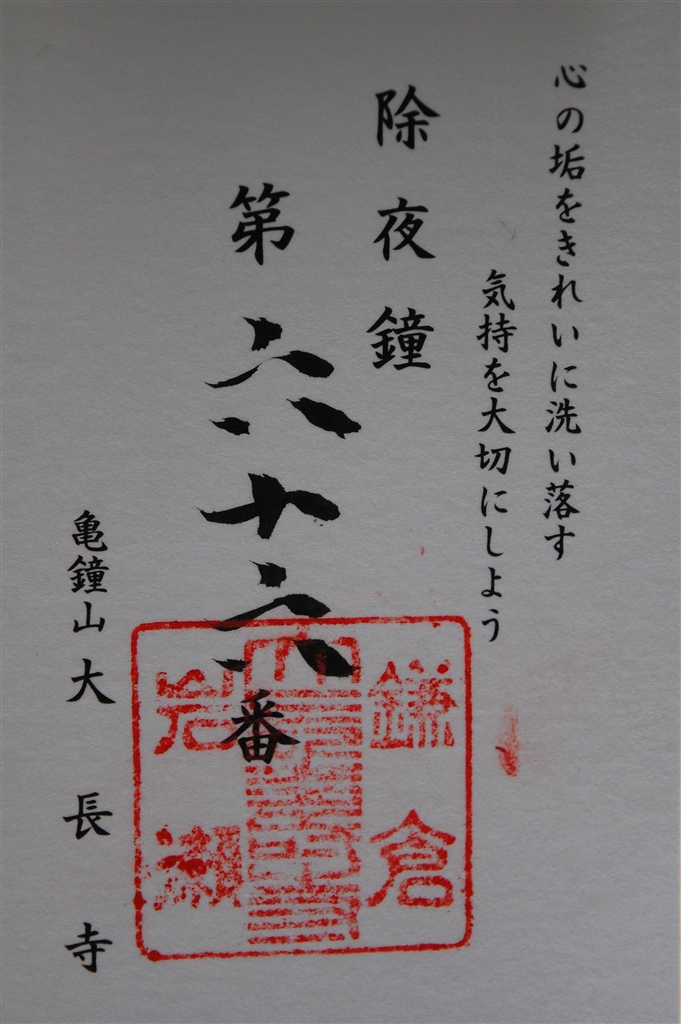 心の垢をきれいに洗い落す
気持を大切にしよう
除夜鐘
第六十六番
亀鐘山大長寺
鎌倉
岩瀬